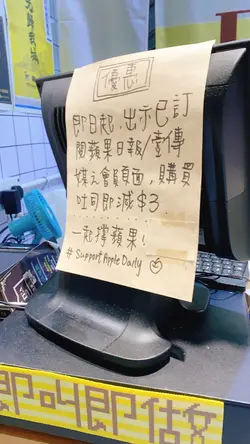 優惠
即日起，出示已訂
閱蘋果日報/壹傳
媒之會員頁面，購買
吐司即減$3.
一起撐蘋果！
# Support Apple Daily
即叫即做